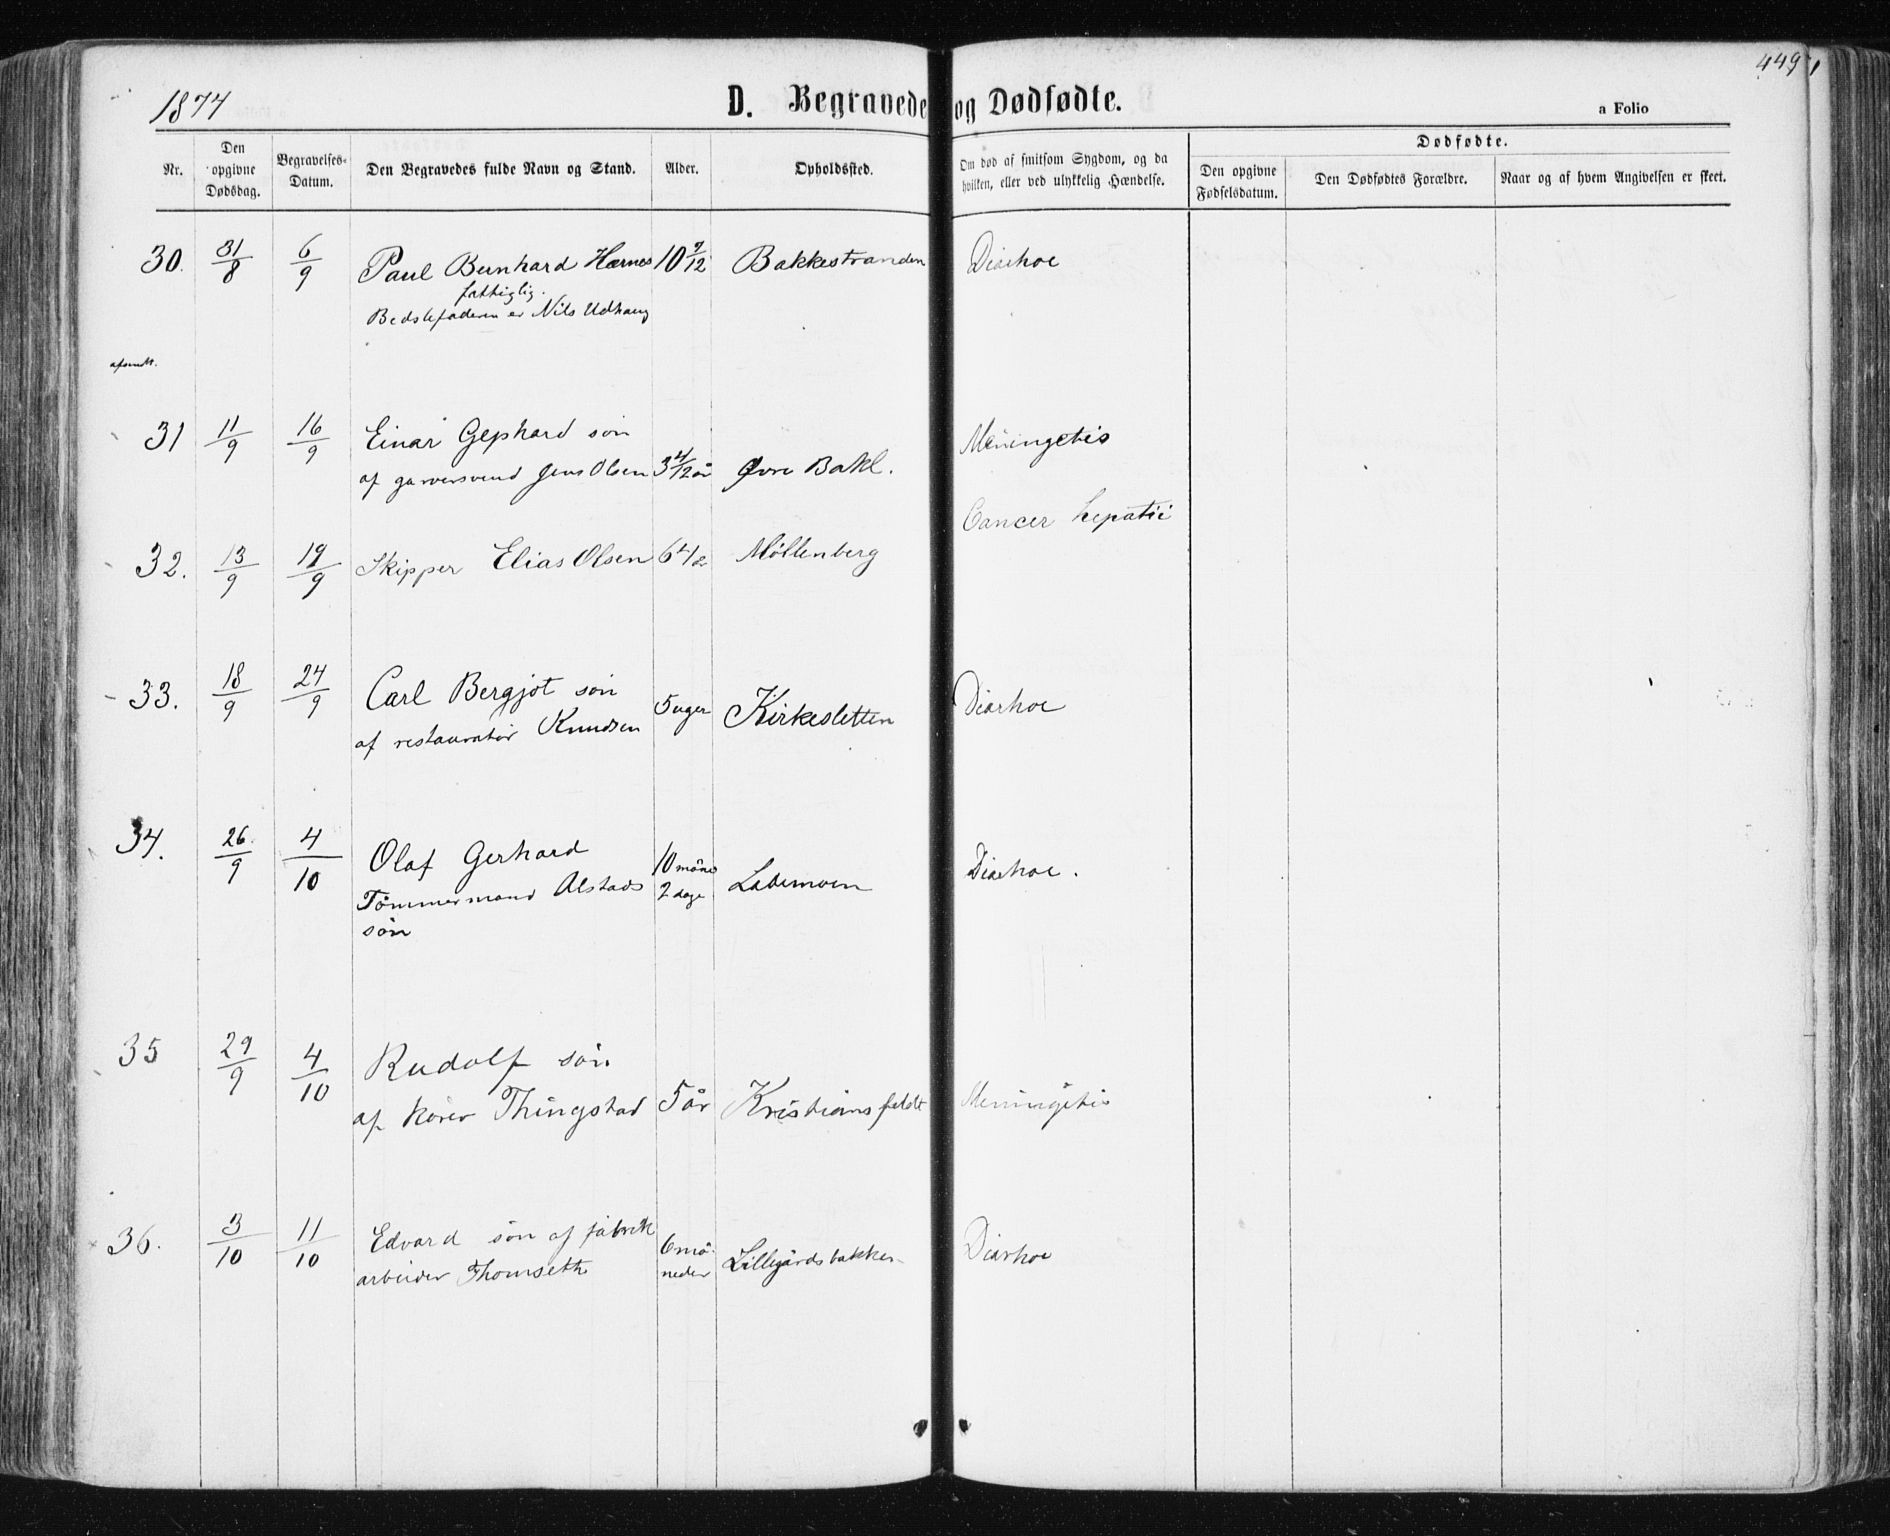 449
1874
D. Begravede og Dødfødte.
a Folio
Nr.
Den opgivne Dødsdag.
Begravelses-Datum.
Den Begravedes fulde Navn og Stand.
Alder.
Opholdssted.
Om død af smitsom Sygdom, og da hvilken, eller ved ulykkelig Hændelse.
Dødfødte.
Den opgivne Fødselsdatum.
Den Dødfødtes Forældre.
Naar og af hvem Angivelsen er skeet.
30. 31/8 6/9 Paul Bernhard Hærnes 10 9/12 Bakkestranden Diarhoe
fattiglig.
Bedstefaderen er Nils Udhaug
afsendt.
31 11/9 16/9 Einar Gephard søn Meningetis
af garversvend Jens Olsen 3 4/12 år Øvre Bakl.
Cancer hepatii
32. 13/9 19/9 Skipper Elias Olsen 64 1/2 Møllenberg
33. 18/9 24/9 Carl Bergjot søn 5 uger Kirkesletten Diarhoe
af restauratør Knudsen
34. 26/9 4/10 Olaf Gerhard 10 måne Lademoen Diarhoe.
Tømmermand Alstads 2 dage
søn
35 29/9 4/10 Rudolf søn
af kører Thingstad 5 år Kristiansfeldt Meningetis
36. 3/10 11/10 Edvard søn af fabrik 6 må- Lillegårdsbakken Diarhoe
arbeider Thomseth neder